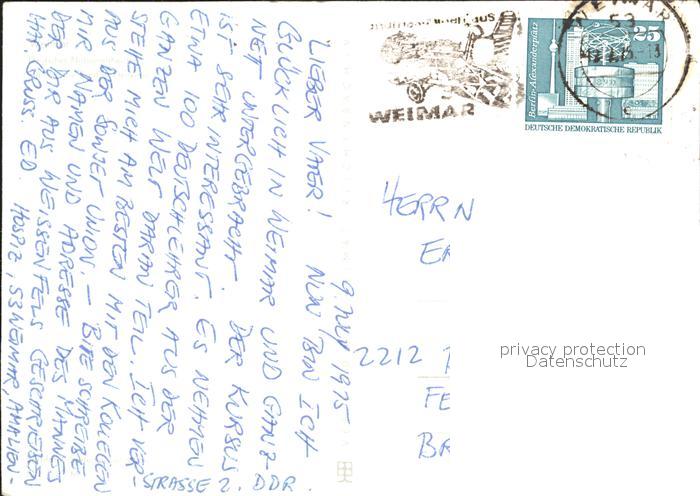 9. JULI 1975
LIEBER VATER! NUN BIN ICH
GLÜCKLICH IN WEIMAR UND GANZ
NETT UNTERGEBRACHT. DER KURSUS
IST SEHR INTERESSANT. ES NEHMEN
ETWA 100 DEUTSCHLEHRER AUS DER
GANZEN WELT DARAN TEIL. ICH VER-
STEHE MICH AM BESTEN MIT DEN KOLLEGEN
AUS DER SOWJET UNION. – BITTE SCHREIBE
MIR NAMEN UND ADRESSE DES MANNES
DER DIR AUS WEISSENFELS GESCHRIEBEN
HAT. GRUSS ED. HOSPIZ, 53 WEIMAR, AMALIEN-
STRASSE 2. DDR.
WEIMAR
WEIMAR
53
25
Berlin-Alexanderplatz
DEUTSCHE DEMOKRATISCHE REPUBLIK
HERRN
ER
2212
FE
BR
privacy protection
Datenschutz